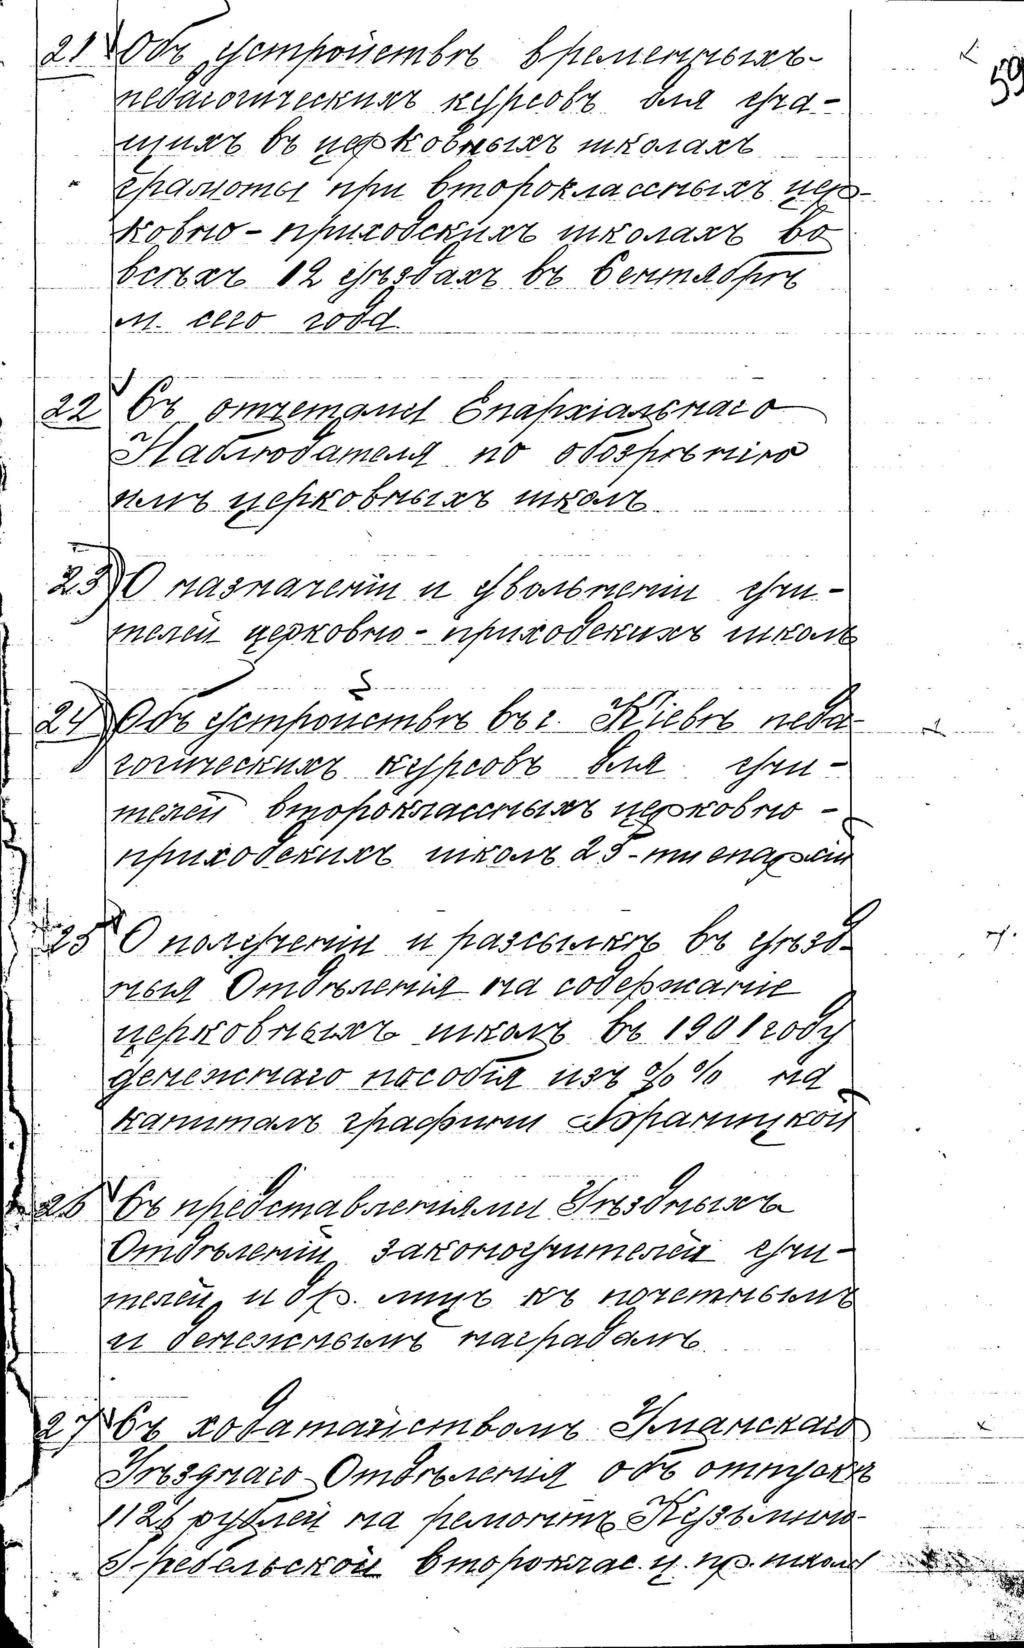 59
21 Объ устройствѣ временныхъ
педагогическихъ курсовъ для уча-
щихъ въ церковныхъ школахъ
грамоты при второклассныхъ цер-
ковно-приходскихъ школахъ во
всѣхъ 12 уѣздахъ въ Сентябрѣ
м. сего года
22 Съ отчетами Епархіальнаго
Наблюдателя по обозрѣнію
имъ церковныхъ школъ
23 О назначеніи и увольненіи учи-
телей церковно-приходскихъ школъ
24 Объ устройствѣ въ г. Кіевѣ педа-
гогическихъ курсовъ для учи-
телей второклассныхъ церковно-
приходскихъ школъ 25-ти епархій
25 О полученіи и разсылкѣ въ уѣзд-
ныя Отдѣленія на содержаніе
церковныхъ школъ въ 1901 году
денежнаго пособія изъ %% на
капиталъ графини Браницкой
26 Съ представленіями Уѣздныхъ
Отдѣленій законоучителей учи-
телей и др. лицъ къ почетнымъ
и денежнымъ наградамъ
27 Съ ходатайствомъ Уманскаго
Уѣзднаго Отдѣленія объ отпускѣ
1126 рублей на ремонтъ Кузьмино-
Гребельской второклас. ц. пр. школы